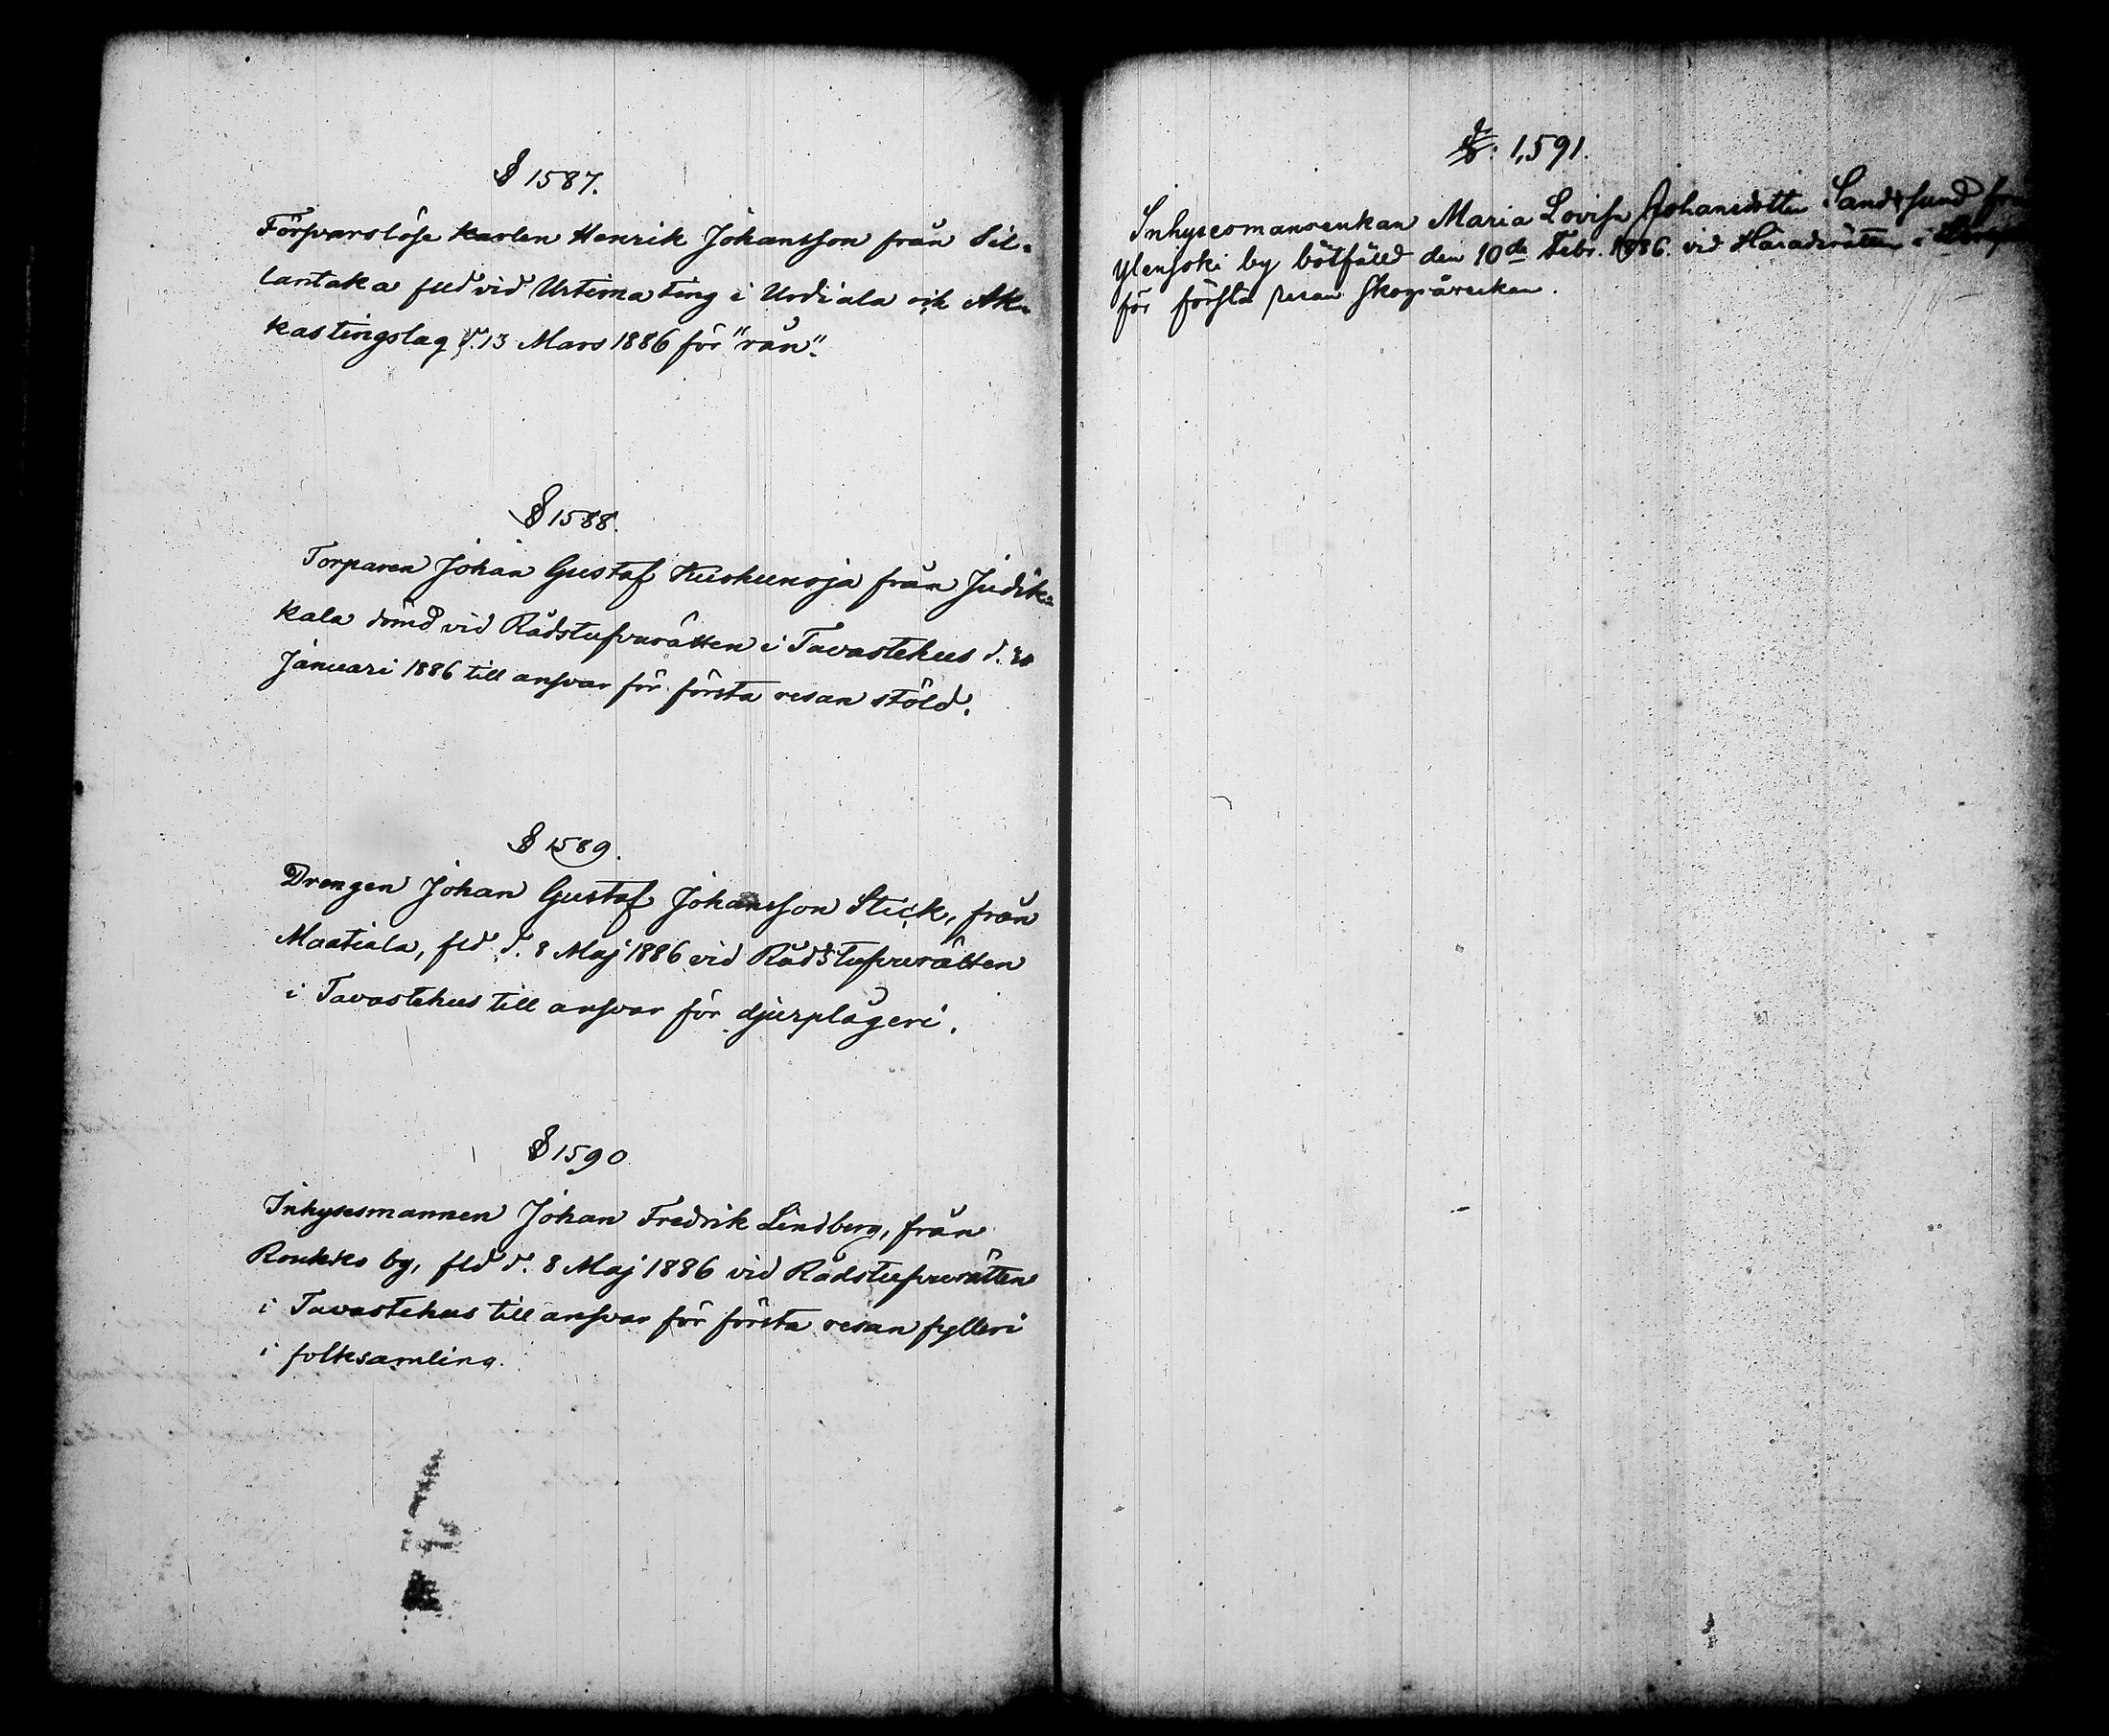 § 1587.
Försvarslöse karlen Henrik Johansson från Sil-
lantaka flld vid Urtima ting i Urdiala och Ak-
kas tingslag d. 13 Mars 1886 för "rån".
§ 1588.
Torparen Johan Gustaf Kuskunoja från Judik-
kala dömd vid Rådstufvurätten i Tavastehus d. 30
Januari 1886 till ansvar för första resan stöld.
§ 1589.
Drengen Johan Gustaf Johansson Stick, från
Maatiala, flld d. 8 Maj 1886 vid Rådstufvurätten
i Tavastehus till ansvar för djurplågeri.
§ 1590
Inhysesmannen Johan Fredrik Lindberg, från
Roukko by, flld d. 8 Maj 1886 vid Rådstufvurätten
i Tavastehus till ansvar för första resan fylleri
i folksamling.
§: 1,591.
Inhysesmansenkan Maria Lovisa Johansdotter Sandsund
Ylensoki by bötfälld den 10de Febr. 1886. vid Häradsrätten i
för första resan skogsåverkan.